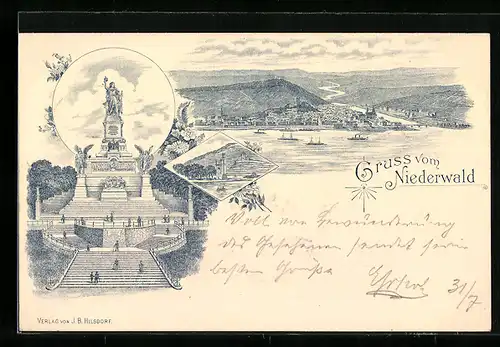 Gruss vom
Niederwald
Voll von Bewunderung
des Gesehenen sendet seine
besten Grüße
31/7
VERLAG VON J. B. HILSDORF.